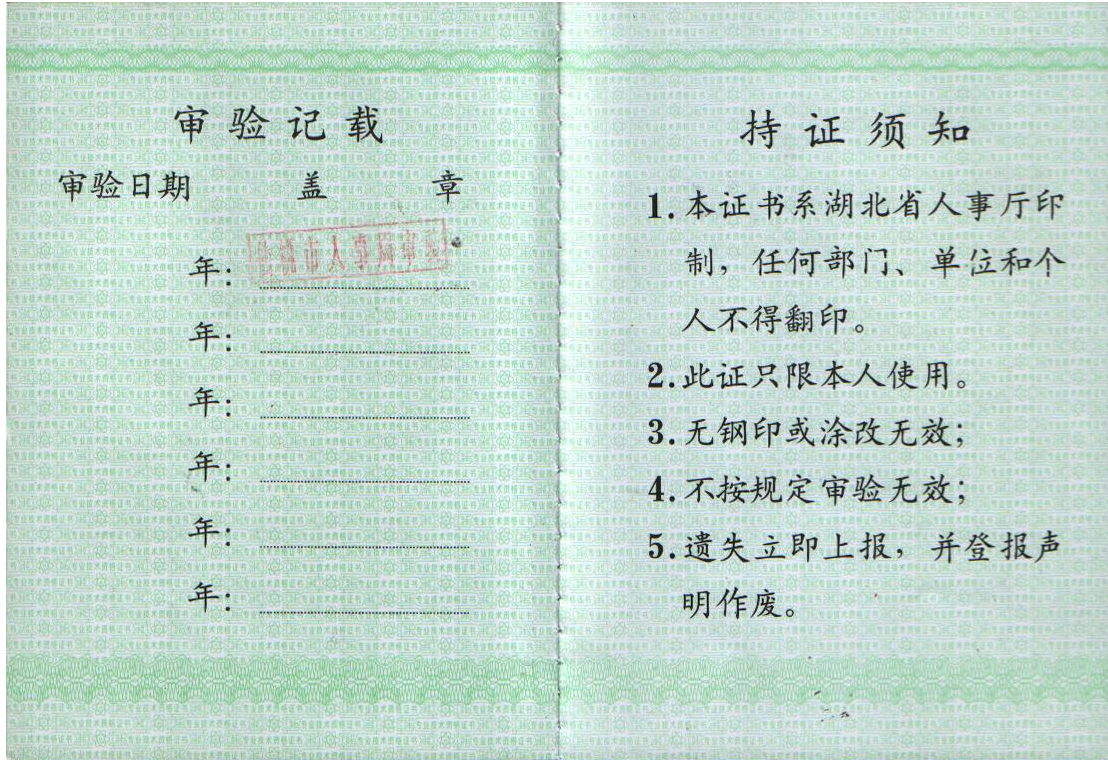 审验记载
审验日期 盖 章
年：
市人事局审
年：
年：
年：
年：
年：
持证须知
1.本证书系湖北省人事厅印
制，任何部门、单位和个
人不得翻印。
2.此证只限本人使用。
3.无钢印或涂改无效；
4.不按规定审验无效；
5.遗失立即上报，并登报声
明作废。